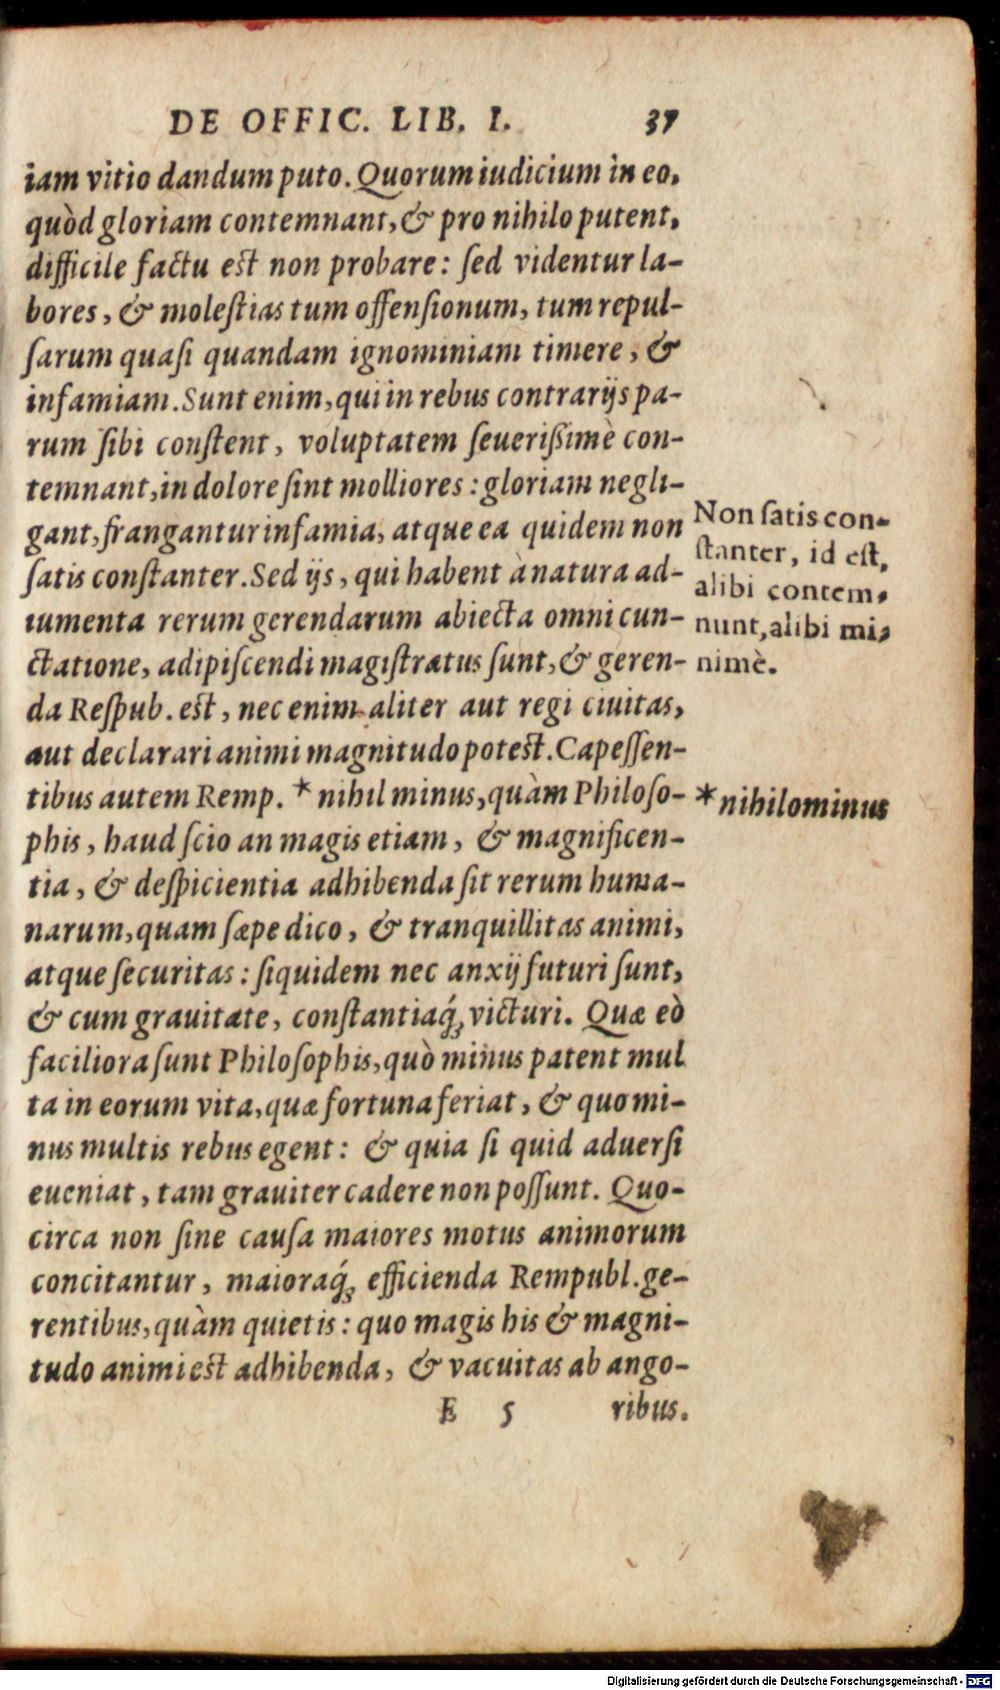 DE OFFIC. LIB. I. 37
iam vitio dandum puto. Quorum iudicium in eo,
quòd gloriam contemnant, & pro nihilo putent,
difficile factu est non probare: sed videntur la-
bores, & molestias tum offensionum, tum repul-
sarum quasi quandam ignominiam timere, &
infamiam. Sunt enim, qui in rebus contrarijs pa-
rum sibi constent, voluptatem seuerißimè con-
temnant, in dolore sint molliores: gloriam negli-
gant, frangantur infamia, atque ea quidem non
satis constanter. Sed ijs, qui habent à natura ad-
iumenta rerum gerendarum abiecta omni cun-
ctatione, adipiscendi magistratus sunt, & geren-
da Respub. est, nec enim aliter aut regi ciuitas,
aut declarari animi magnitudo potest. Capessen-
tibus autem Remp. * nihil minus, quàm Philoso-
phis, haud scio an magis etiam, & magnificen-
tia, & despicientia adhibenda sit rerum huma-
narum, quam sæpe dico, & tranquillitas animi,
atque securitas: siquidem nec anxij futuri sunt,
& cum grauitate, constantiaq́; victuri. Quæ eò
faciliora sunt Philosophis, quò minus patent mul
ta in eorum vita, quæ fortuna feriat, & quo mi-
nus multis rebus egent: & quia si quid aduersi
eueniat, tam grauiter cadere non possunt. Quo-
circa non sine causa maiores motus animorum
concitantur, maioraq́; efficienda Rempubl. ge-
rentibus, quàm quietis: quo magis his & magni-
tudo animi est adhibenda, & vacuitas ab ango-
E 5 ribus.
Non satis con-
stanter, id est,
alibi contem-
nunt, alibi mi-
nimè.
* nihilominus
Digitalisierung gefördert durch die Deutsche Forschungsgemeinschaft - DFG